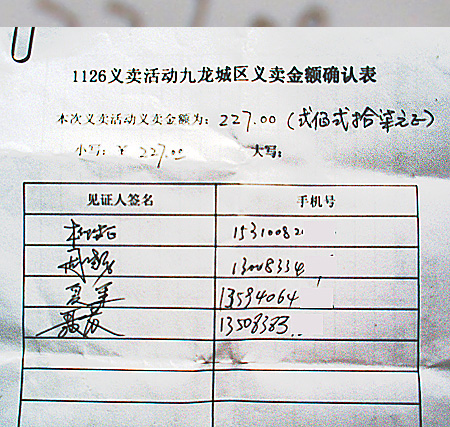 1126义卖活动九龙城区义卖金额确认表
本次义卖活动义卖金额为：227.00（弍佰弍拾柒元正）
小写：￥ 227.00 大写：
见证人签名 手机号
15310082
13008334
13594064
13508383